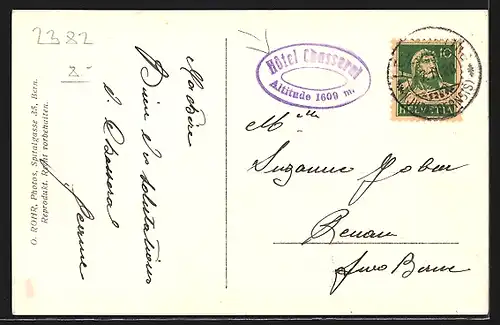 2382
8.-
O. ROHR, Photos, Spitalgasse 35, Bern.
Reprodukt. Recht vorbehalten.
Bien des salutations
d. Chasseral
Hôtel Chasseral
Altitude 1609 m.
10
HELVETIA
Mlle
Suzanne Gobat
Renan
Jura Bern